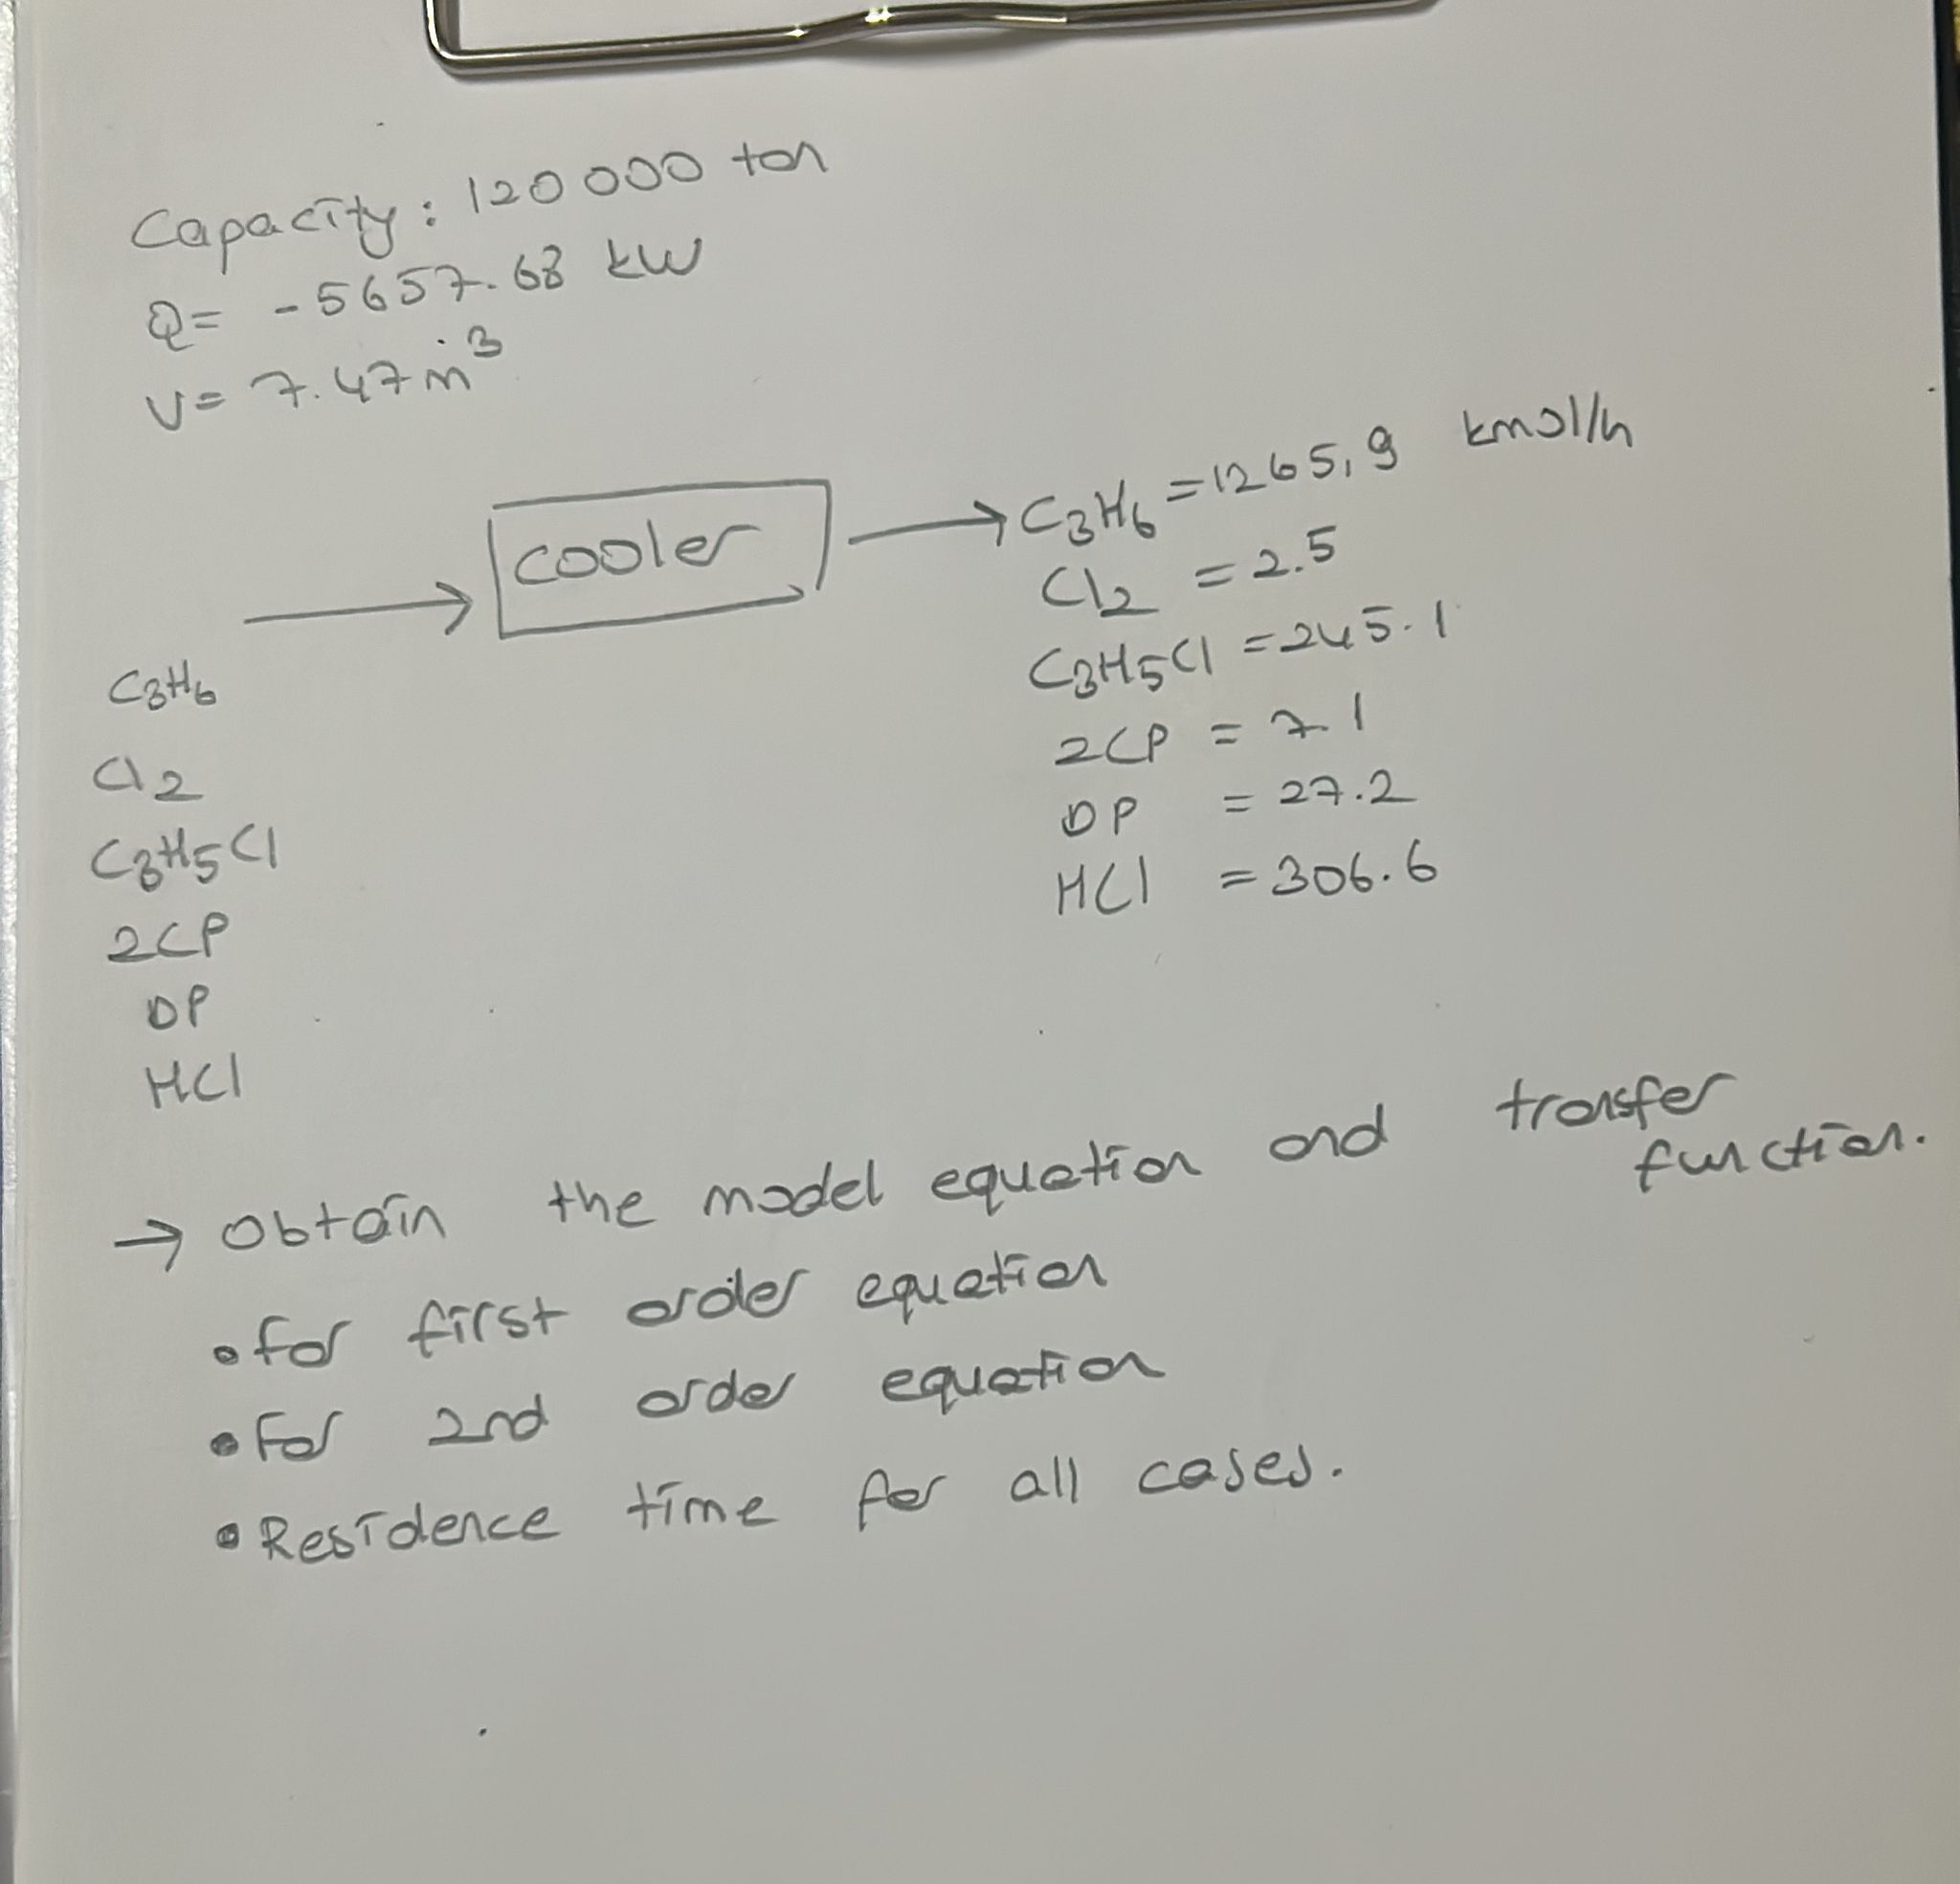 Capacity: 120 000 ton
Q= -5657.68 kW
V= 7.47 m³
cooler
C3H6 = 1265,9 kmol/h
Cl2 = 2.5
C3H5Cl = 245.1
2CP = 7.1
DP = 27.2
HCl = 306.6
C3H6
Cl2
C3H5Cl
2CP
DP
HCl
→ Obtain the model equation and transfer
function.
• for first order equation
• For 2nd order equation
• Residence time for all cases.